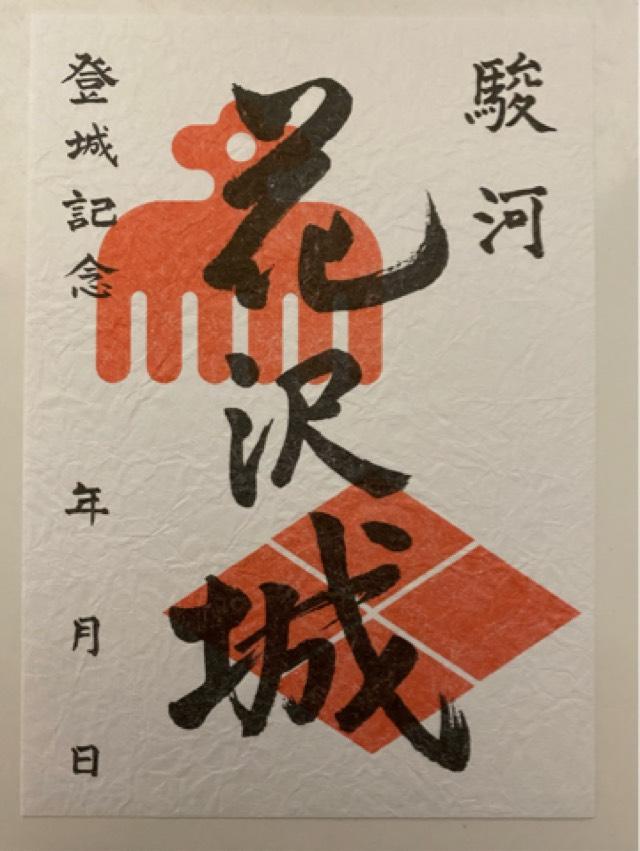 駿河
花沢城
登城記念
年 月 日